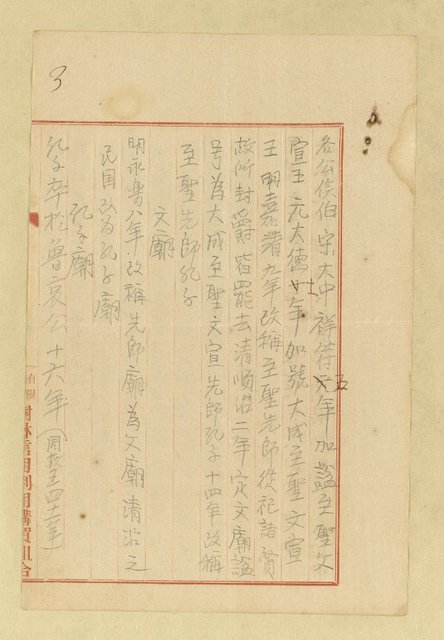 3
各公侯伯宋大中祥符五年加謚至聖文
宣王元大德十一年加號大成至聖文宣
王明嘉靖九年改稱至聖先師從祀諸賢
故所封爵皆罷去清順治二年定文廟謚
号為大成至聖文宣先師孔子十四年改稱
至聖先師孔子
文廟
明永樂八年改稱先師廟為文廟清沿之
民国改為孔子廟
孔子廟
孔子卒於魯哀公十六年(周敬王四十一年)
樹林信用利用購買組合